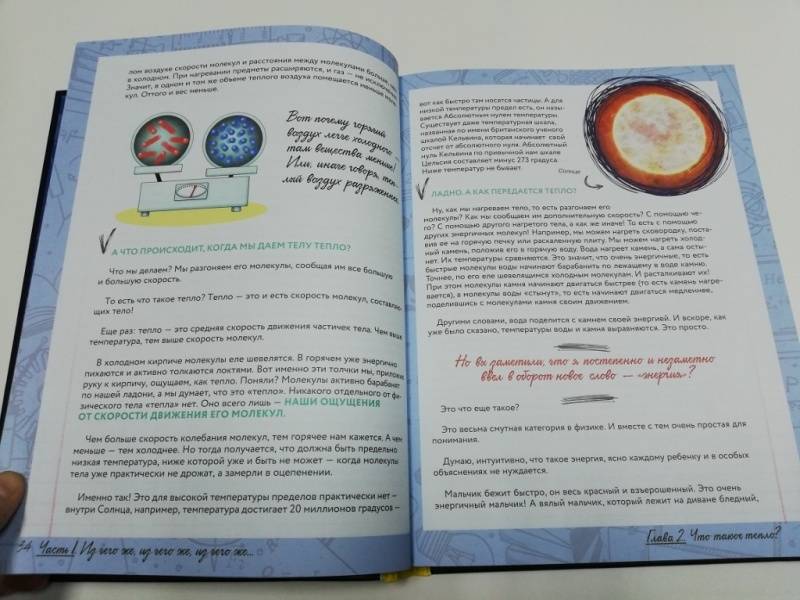 лом воздухе скорости молекул и расстояния между молекулами больше, чем
в холодном. При нагревании предметы расширяются, и газ — не исключение.
Значит, в одном и том же объеме теплого воздуха помещается меньше моле-
кул. Оттого и вес меньше.
Вот почему горячий
воздух легче холодного —
там вещества меньше!
Или, иначе говоря, теп-
лый воздух разряженнее.
А ЧТО ПРОИСХОДИТ, КОГДА МЫ ДАЕМ ТЕЛУ ТЕПЛО?
Что мы делаем? Мы разгоняем его молекулы, сообщая им все большую
и большую скорость.
То есть что такое тепло? Тепло — это и есть скорость молекул, составляю-
щих тело!
Еще раз: тепло — это средняя скорость движения частичек тела. Чем выше
температура, тем выше скорость молекул.
В холодном кирпиче молекулы еле шевелятся. В горячем уже энергично
пихаются и активно толкаются локтями. Вот именно эти толчки мы, приложив
руку к кирпичу, ощущаем, как тепло. Поняли? Молекулы активно барабанят
по нашей ладони, а мы думает, что это «тепло». Никакого отдельного от фи-
зического тела «тепла» нет. Оно всего лишь — НАШИ ОЩУЩЕНИЯ
ОТ СКОРОСТИ ДВИЖЕНИЯ ЕГО МОЛЕКУЛ.
Чем больше скорость колебания молекул, тем горячее нам кажется. А чем
меньше — тем холоднее. Но тогда получается, что должна быть предельно
низкая температура, ниже которой уже и быть не может — когда молекулы
тела уже практически не дрожат, а замерли в оцепенении.
Именно так! Это для высокой температуры пределов практически нет —
внутри Солнца, например, температура достигает 20 миллионов градусов —
34 Часть 1. Из чего же, из чего же, из чего же...
вот как быстро там носятся частицы. А для
низкой температуры предел есть, он назы-
вается Абсолютным нулем температуры.
Существует даже температурная шкала,
названная по имени британского ученого
шкалой Кельвина, которая начинает свой
отсчет от абсолютного нуля. Абсолютный
нуль Кельвина по привычной нам шкале
Цельсия составляет минус 273 градуса.
Ниже температур не бывает.
Солнце
ЛАДНО. А КАК ПЕРЕДАЕТСЯ ТЕПЛО?
Ну, как мы нагреваем тело, то есть разгоняем его
молекулы? Как мы сообщаем им дополнительную скорость? С помощью че-
го? С помощью другого нагретого тела, а как же иначе! То есть с помощью
других энергичных молекул! Например, мы можем нагреть сковородку, поста-
вив ее на горячую печку или раскаленную плиту. Мы можем нагреть холод-
ный камень, положив его в горячую воду. Вода нагреет камень, а сама осты-
нет. Их температуры сравняются. Это значит, что очень энергичные, то есть
быстрые молекулы воды начинают барабанить по лежащему в воде камню.
Точнее, по его еле шевелящимся холодным молекулам. И расталкивают их!
При этом молекулы камня начинают двигаться быстрее (то есть камень нагре-
вается), а молекулы воды «стынут», то есть начинают двигаться медленнее,
поделившись с молекулами камня своим движением.
Другими словами, вода поделится с камнем своей энергией. И вскоре, как
уже было сказано, температуры воды и камня выравняются. Это просто.
Но вы заметили, что я постепенно и незаметно
ввел в оборот новое слово — «энергия»?
Это что еще такое?
Это весьма смутная категория в физике. И вместе с тем очень простая для
понимания.
Думаю, интуитивно, что такое энергия, ясно каждому ребенку и в особых
объяснениях не нуждается.
Мальчик бежит быстро, он весь красный и взъерошенный. Это очень
энергичный мальчик! А вялый мальчик, который лежит на диване бледный,
Глава 2. Что такое тепло?